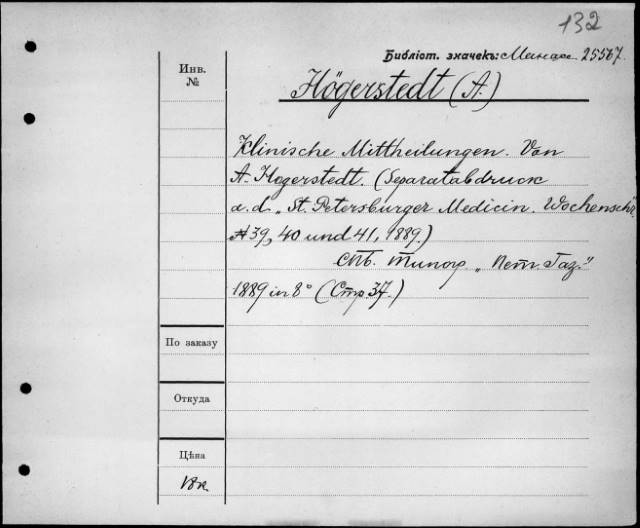 132
Библіот. значекъ: 25567.
Инв.
№
Högerstedt (A.)
Klinische Mittheilungen. Von
A. Hogerstedt. (Separatabdruck
a. d. „St. Petersburger Medicin. Wochenschr.
№ 39, 40 und 41, 1889.)
СПб. Типогр. „Пет. Газ."
1889 in 8° (Стр. 37.)
По заказу
Откуда
Цѣна